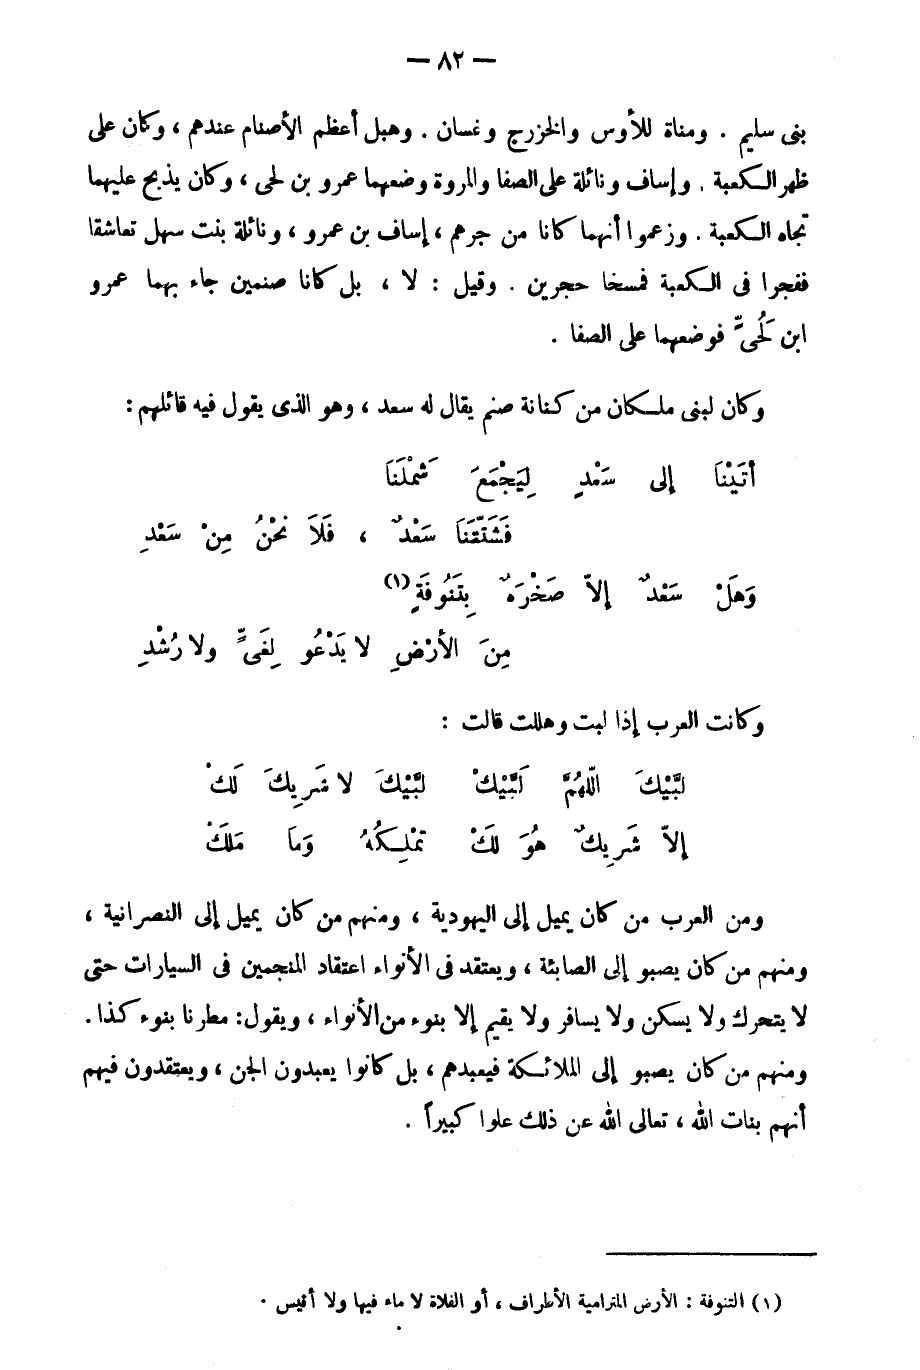 — ٨٢ —
بنى سليم . ومناة للأوس والخزرج وغسان . وهبل أعظم الأصنام عندهم ، وكان على
ظهر الكعبة . وإساف ونائلة على الصفا والمروة وضعهما عمرو بن لحى ، وكان يذبح عليهما
تجاه الكعبة . وزعموا أنهما كانا من جرهم ، إساف بن عمرو ، ونائلة بنت سهل تعاشقا
ففجرا فى الكعبة فمسخا حجرين . وقيل : لا ، بل كانا صنمين جاء بهما عمرو
ابن لُحىٍّ فوضعهما على الصفا .
وكان لبنى ملكان من كنانة صنم يقال له سعد ، وهو الذى يقول فيه قائلهم :
أَتَيْنَا إلى سَعْدٍ لِيَجْمَعَ شَمْلَنَا
فَشَتَّتَنَا سَعْدٌ ، فَلاَ نَحْنُ مِنْ سَعْدِ
وَهَلْ سَعْدٌ إلاّ صَخْرَةٌ بِتَنُوفَةٍ (١)
مِنَ الأَرْضِ لا يَدْعُو لِغَىٍّ ولا رُشْدِ
وكانت العرب إذا لبت وهللت قالت :
لبَّيْكَ اللّهُمَّ لَبَّيْكْ لبَّيْكَ لا شَرِيكَ لَكْ
إلاّ شَرِيكٌ هُوَ لَكْ تَمْلِكُهُ وَمَا مَلَكْ
ومن العرب من كان يميل إلى اليهودية ، ومنهم من كان يميل إلى النصرانية ،
ومنهم من كان يصبو إلى الصابئة ، ويعتقد فى الأنواء اعتقاد المنجمين فى السيارات حتى
لا يتحرك ولا يسكن ولا يسافر ولا يقيم إلا بنوء من الأنواء ، ويقول : مطرنا بنوء كذا .
ومنهم من كان يصبو إلى الملائكة فيعبدهم ، بل كانوا يعبدون الجن ، ويعتقدون فيهم
أنهم بنات الله ، تعالى الله عن ذلك علوا كبيراً .
(١) التنوفة : الأرض المترامية الأطراف ، أو الفلاة لا ماء فيها ولا أنيس .